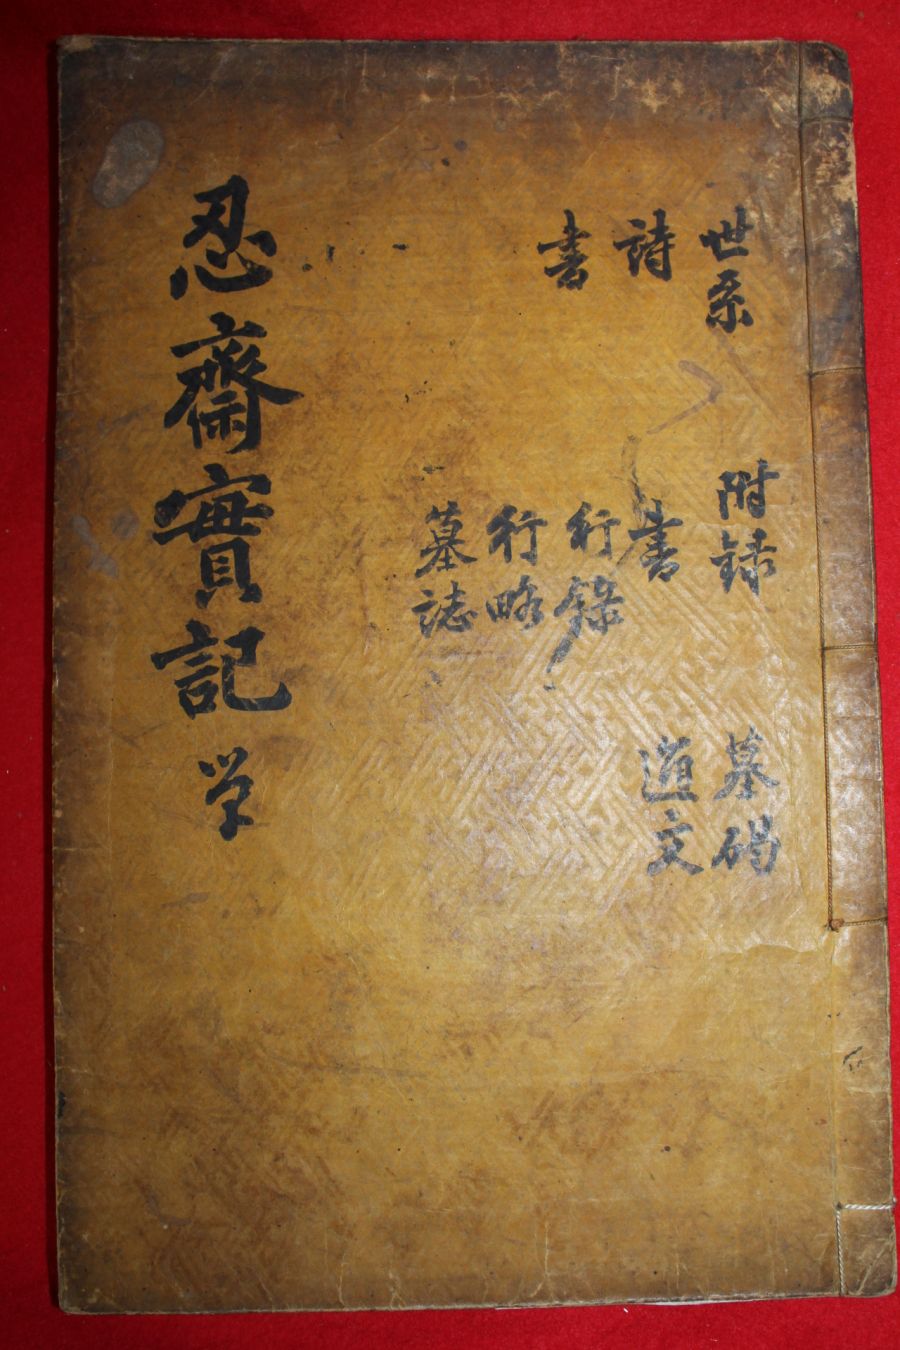 世系
詩
書
附録
書
行錄
行略
墓誌
墓碣
道文
忍齋實記 孝